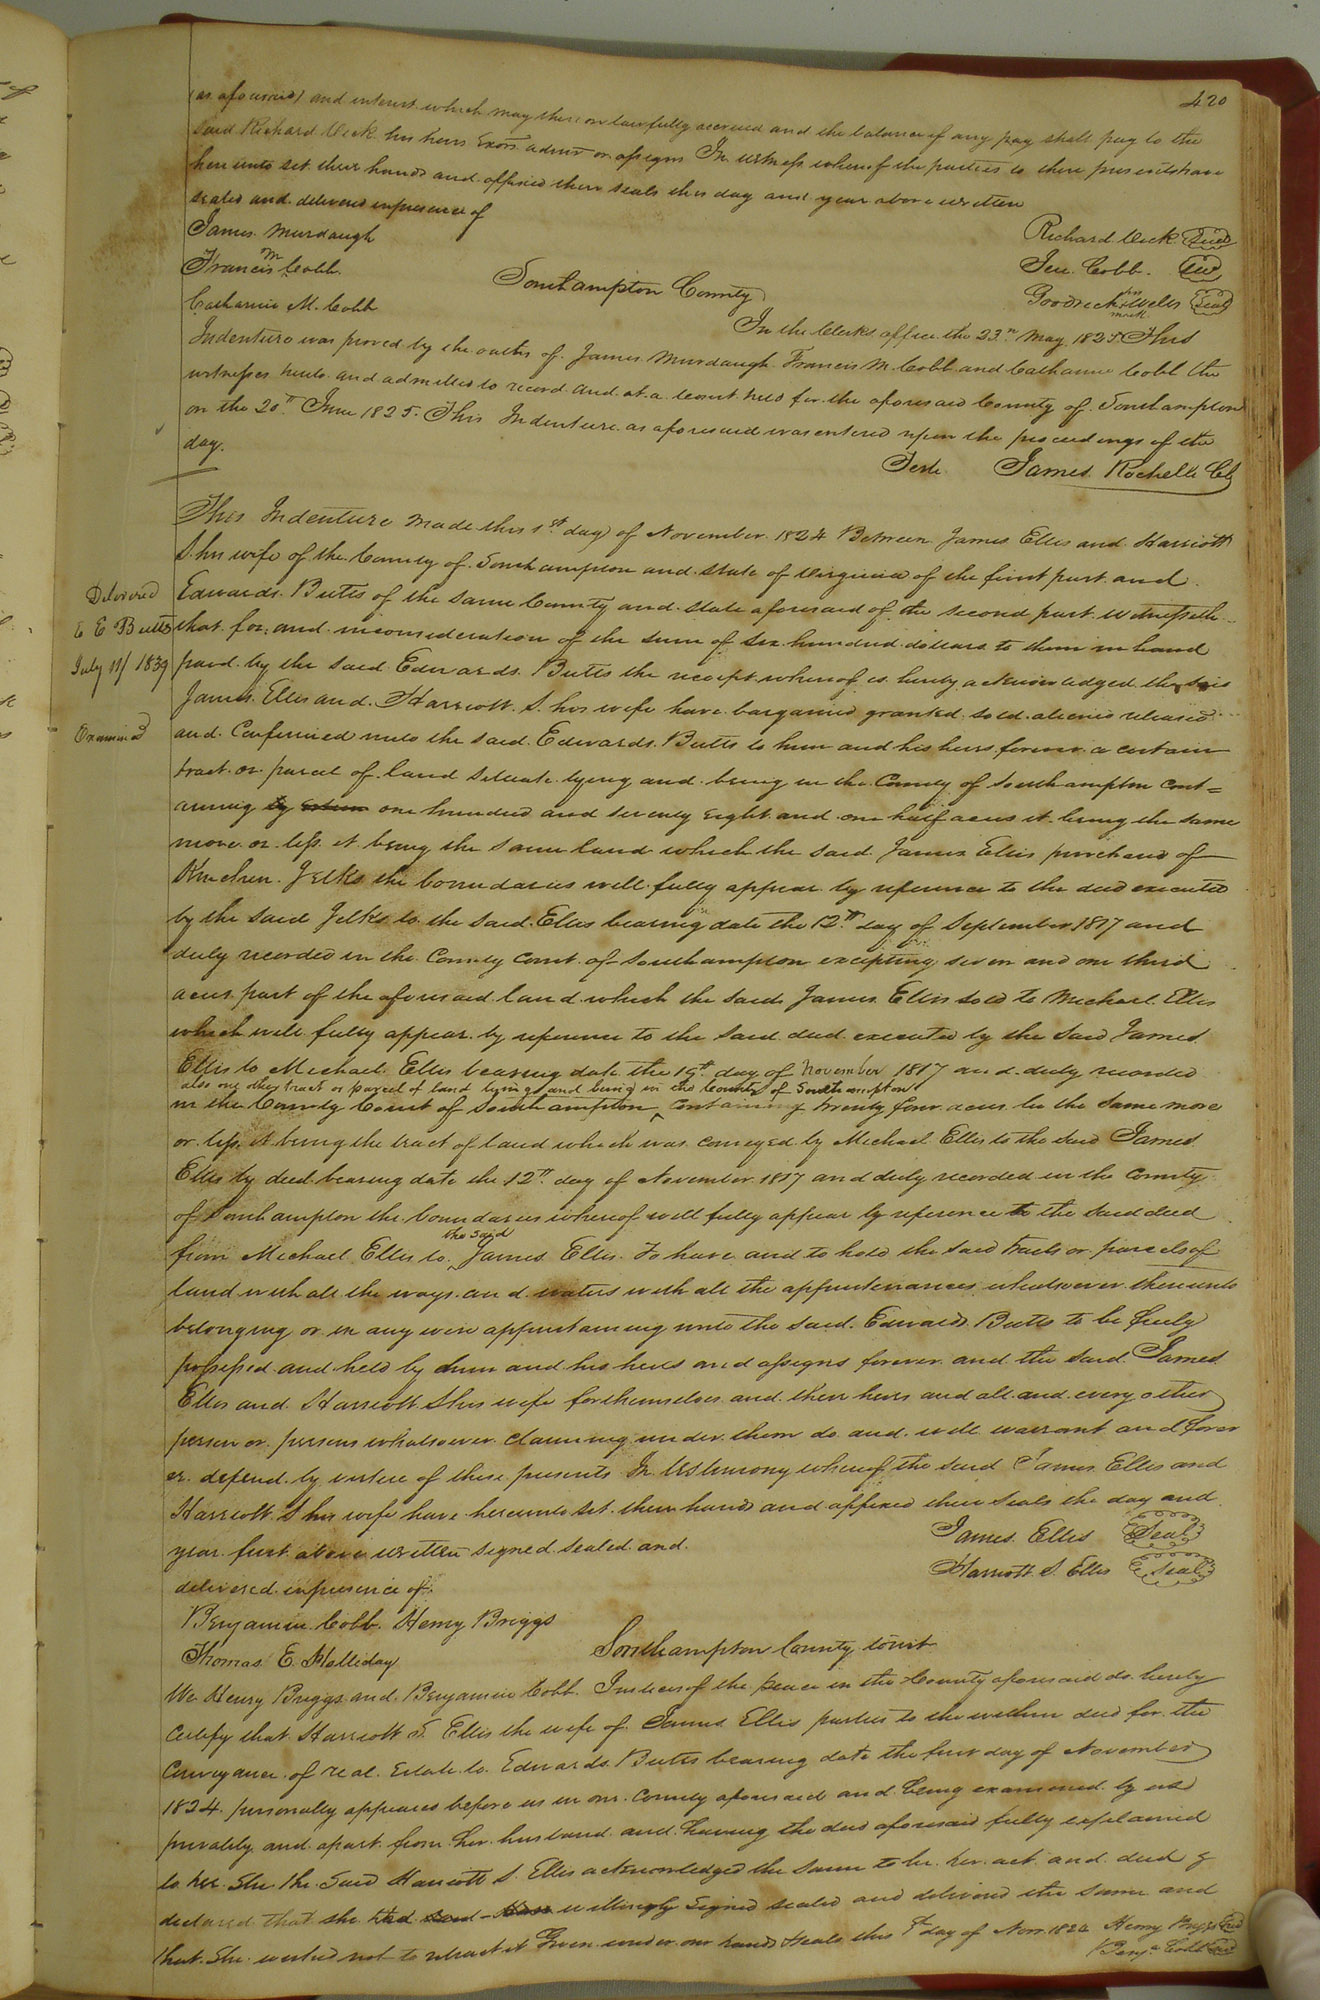 420
(as aforesaid) and interest which may there on lawfully accrued and the balance if any pay shall pay to the
said Richard Vick his heirs Exors admrs or assigns In witness whereof the parties to these presents have
hereunto set their hands and affixed their seals this day and year above written
sealed and delivered in presence of
James Murdaugh
Francis M Cobb
Catharine M. Cobb
Richard Vick Seal
Jere. Cobb. Seal
Goodrich his mark Wells Seal
Southampton County
In the Clerks office the 23rd May 1825 This
Indenture was proved by the oaths of James Murdaugh Francis M. Cobb and Catharine Cobb the
witnesses hereto and admitted to record and at a Court held for the aforesaid County of Southampton
on the 20th June 1825. This Indenture as aforesaid was entered upon the proceedings of the
day.
Teste James Rochelle Clk
This Indenture made this 1st day of November 1824 Between James Ellis and Harriott
S. his wife of the County of Southampton and state of Virginia of the first part and
Edwards Butts of the same County and state aforesaid of the second part witnesseth
that for and inconsideration of the sum of six hundred dollars to them in hand
paid by the said Edwards Butts the receipt whereof is hereby acknowledged the said
James Ellis and Harriott S. his wife have bargained granted sold aliened released
and Confirmed unto the said Edwards Butts to him and his heirs forever a certain
tract or parcel of land situate lying and being in the County of Southampton cont=
aining by one hundred and seventy eight and one half acres it being the same
more or less it being the same land which the said James Ellis purchased of
Kinchen Jelks the boundaries will fully appear by reference to the deed executed
by the said Jelks to the said Ellis bearing date the 12th day of September 1817 and
duly recorded in the County Court of Southampton excepting seven and one third
acres part of the aforesaid land which the said James Ellis sold to Michael Ellis
which will fully appear by reference to the said deed executed by the said James
Ellis to Michael Ellis bearing date the 19th day of November 1817 and duly recorded
also one other tract or parcel of land lying and being in the County of Southampton
in the County Court of Southampton containing twenty four acres be the same more
or less it being the tract of land which was conveyed by Michael Ellis to the said James
Ellis by deed bearing date the 12th day of November 1817 and duly recorded in the County
of Southampton the boundaries whereof will fully appear by reference to the said deed
from Michael Ellis to the said James Ellis To have and to hold the said tracts or parcels of
land with all the ways and waters with all the appurtenances whatsoever thereunto
belonging or in any wise appertaining unto the said Edwards Butts to be freely
possessed and held by him and his heirs and assigns forever and the said James
Ellis and Harriott S his wife for themselves and their heirs and all and every other
person or persons whatsoever claiming under them do and will warrant and forev
er defend by virtue of these presents In testimony whereof the said James Ellis and
Harriott S his wife have hereunto set their hands and affixed their seals the day and
year first above written signed sealed and
delivered in presence of
James Ellis Seal
Harriott S. Ellis Seal
Benjamin Cobb. Henry Briggs
Thomas E. Holliday
Delivered
E E Butts
July 11/1839
Examined
Southampton County court
We Henry Briggs and Benjamin Cobb Justices of the peace in the County aforesaid do hereby
Certify that Harriott S Ellis the wife of James Ellis parties to the within deed for the
Conveyance of real Estate to Edwards Butts bearing date the first day of November
1824 personally appeared before us in our County aforesaid and being examined by us
privately and apart from her husband and having the deed aforesaid fully explained
to her She the said Harriott S. Ellis acknowledged the same to be her act and deed &
declared that she had willingly signed sealed and delivered the same and
that She wished not to retract it Given under our hands & seals this 1st day of Novr 1824 Henry Briggs Seal
Benja Cobb Seal